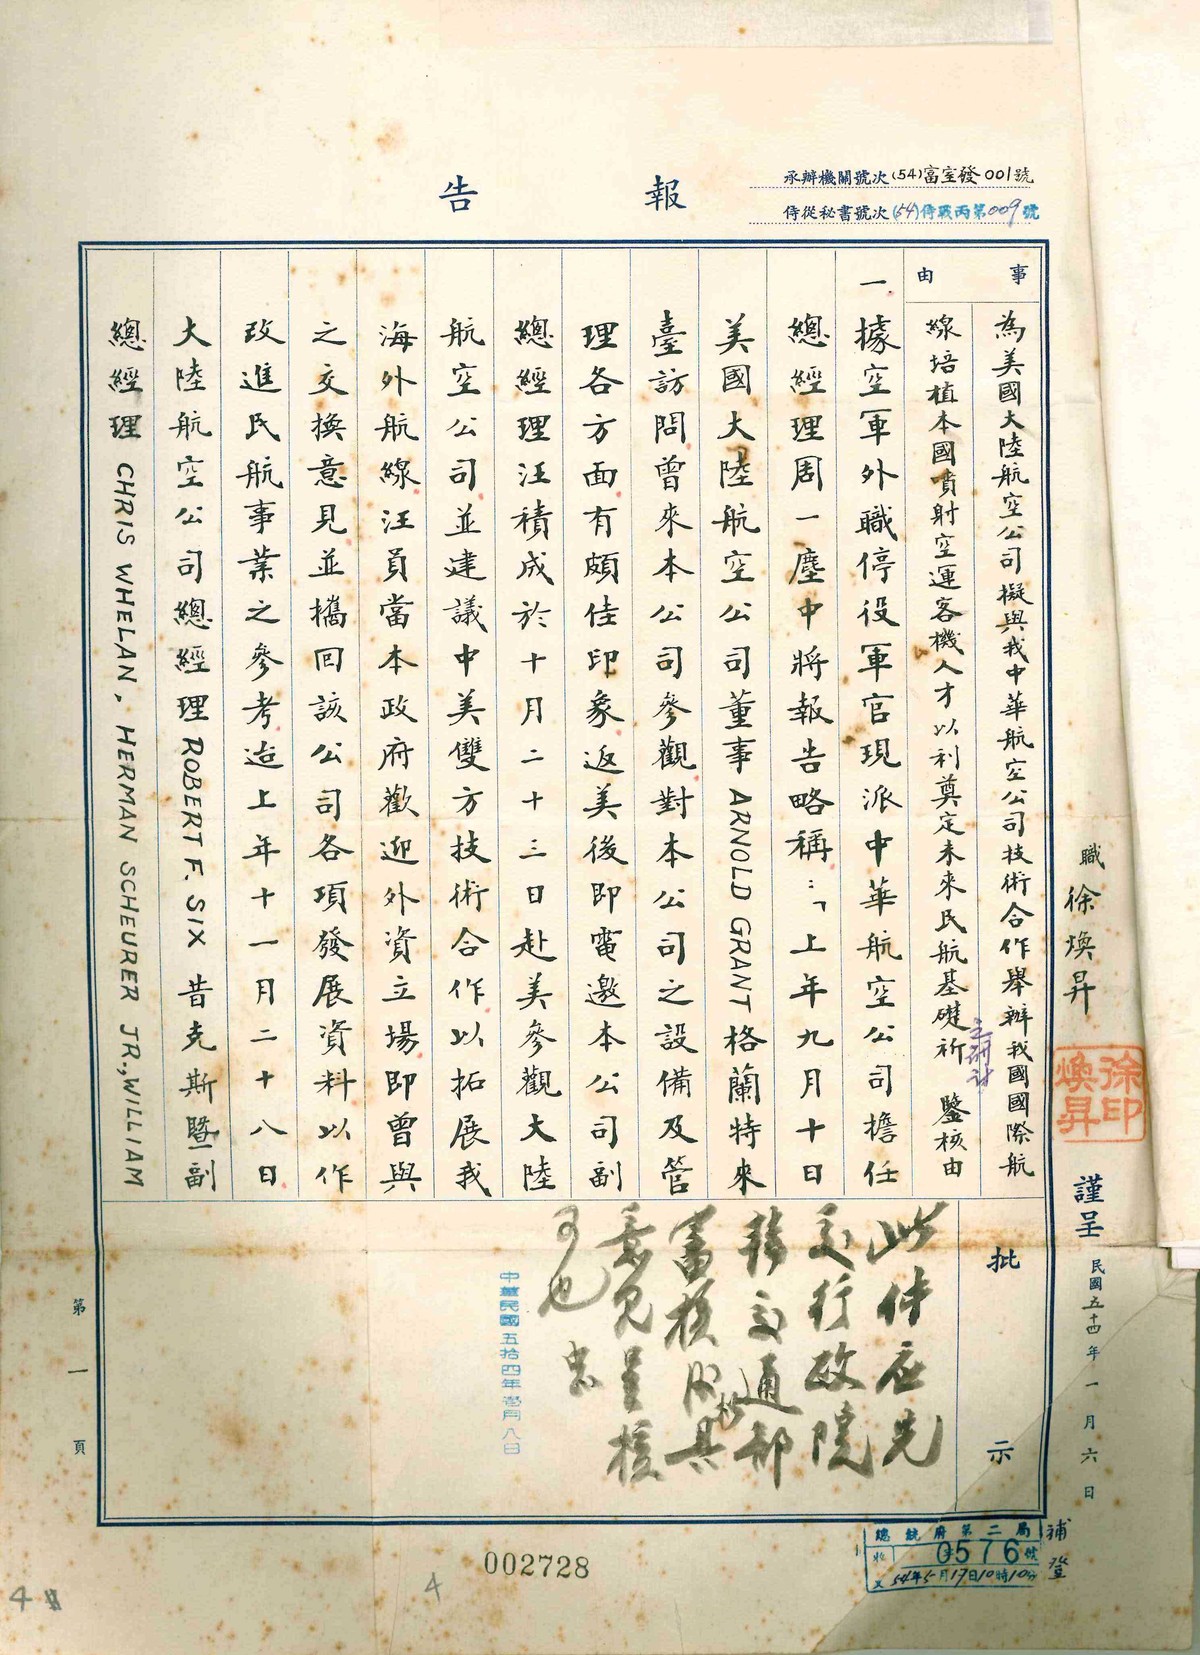 報告
承辦機關號次(54)富室發001號
侍從秘書號次(54)侍戰丙第009號
事由
為美國大陸航空公司擬與我中華航空公司技術合作舉辦我國國際航
線培植本國賁射空運客機人才以利奠定未來民航基礎祈 鑒核由
一據空軍外職停役軍官現派中華航空公司擔任
總經理周一塵中將報告略稱:「上年九月十日
美國大陸航空公司董事ARNOLD GRANT格蘭特來
臺訪問曾來本公司參觀對本公司之設備及管
理各方面有頗佳印象返美後即電邀本公司副
總經理汪積成於十月二十三日赴美參觀大陸
航空公司並建議中美雙方技術合作以拓展我
海外航線汪員當本政府歡迎外資立場即曾與
之交換意見並攜回該公司各項發展資料以作
改進民航事業之參考迨上年十一月二十八日
大陸航空公司總經理ROBERT F. SIX昔克斯暨副
總經理CHRIS WHELAN, HERMAN SCHEURER JR., WILLIAM
職徐煥昇
徐煥昇印
謹呈
民國五十四年一月六日
批示
此件应先
交行政院
轉交通部
審核後具
意见呈核
可也
中華民國五拾四年壹月八日
第一頁
002728
4
4
總統府第二局
收文 字0576號
54年5月17日10時10分
補登